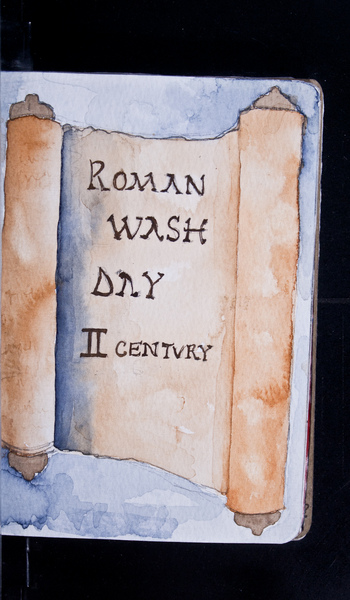 ROMAN
WASH
DAY
II CENTVRY